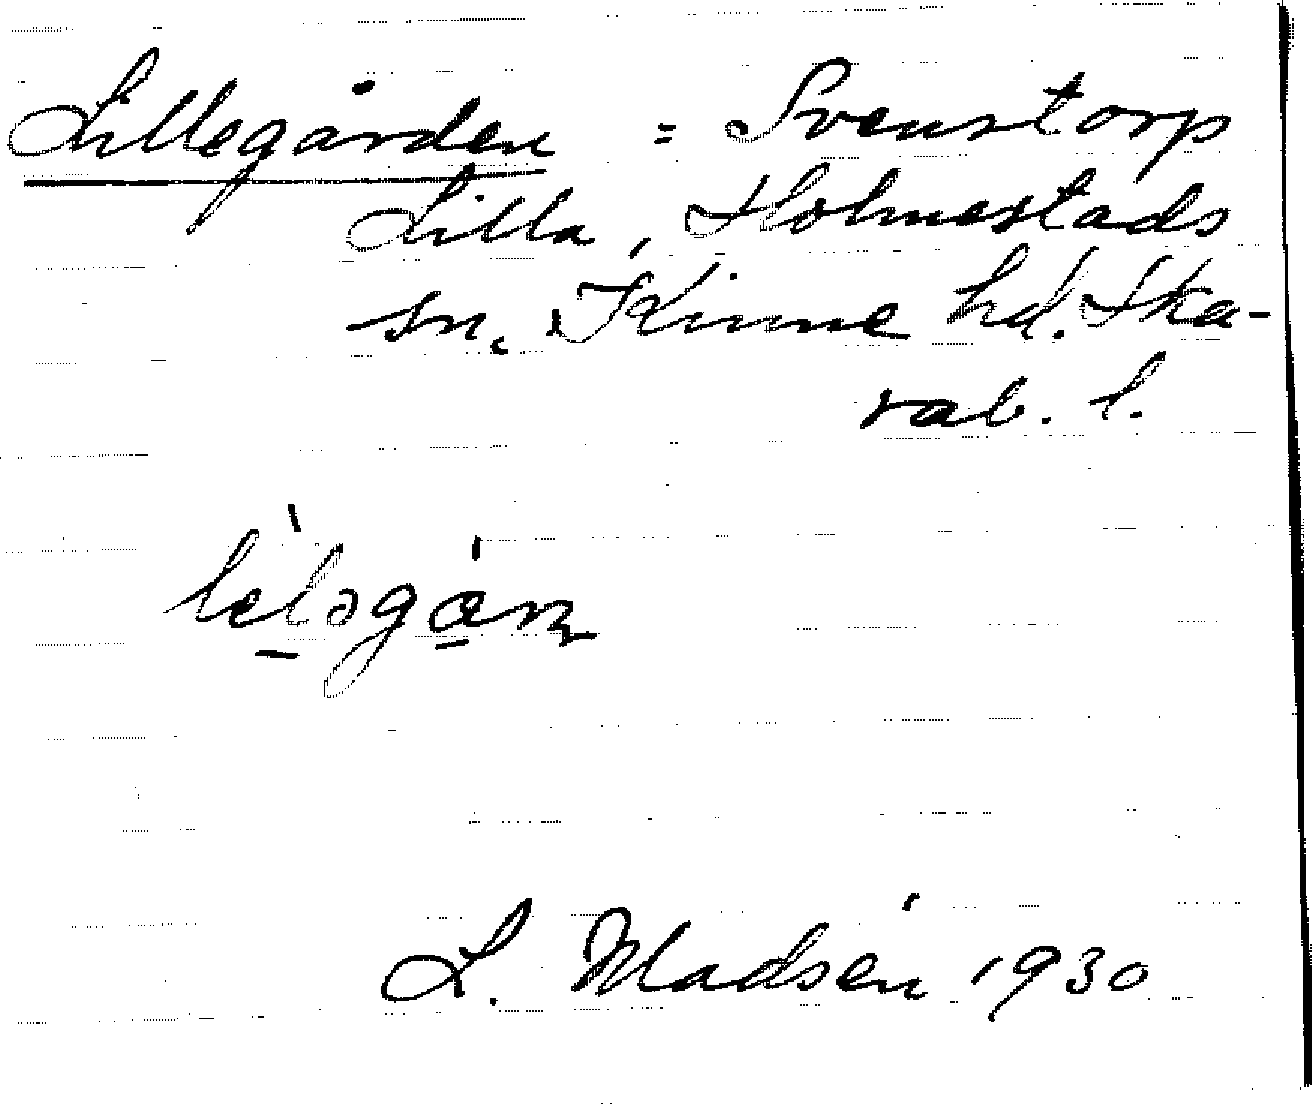 Lillegården = Svenstorp
Lilla, Holmestads
sn, Kinne hd. Ska-
rab. l.
L. Madsén 1930